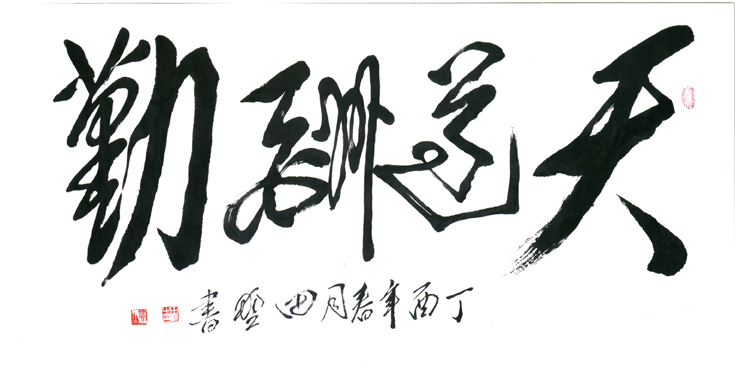 天道酬勤
丁酉年春月田野書